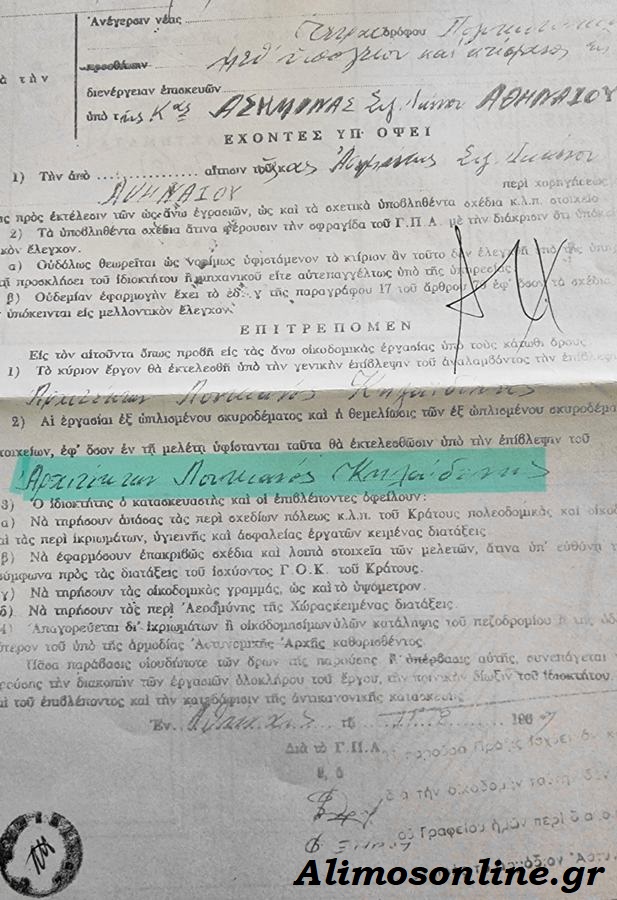 Ἀνέγερσιν νέας Τετραορόφου
προσθήκην μεθ' ὑπογείου καὶ
ὰ τὴν
διενέργειαν ἐπισκευῶν
ὑπὸ τῆς Κας ΑΣΗΜΙΝΑΣ Συζ. ΑΘΗΝΑΙΟΥ
ΕΧΟΝΤΕΣ ΥΠ' ΟΨΕΙ
1) Τὴν ἀπὸ ............ αἴτησιν Συζ.
ΑΘΗΝΑΙΟΥ περὶ χορηγήσεως
ις πρὸς ἐκτέλεσιν τῶν ὡς ἄνω ἐργασιῶν, ὡς καὶ τὰ σχετικὰ ὑποβληθέντα σχέδια κ.λ.π. στοιχεῖα
2) Τὰ ὑποβληθέντα σχέδια ἅτινα φέρουσιν τὴν σφραγίδα τοῦ Γ.Π.Α. μὲ τὴν διάκρισιν ὅτι ὑπόκει
κὸν ἔλεγχον.
α) Οὐδόλως θεωρεῖται ὡς νομίμως ὑφιστάμενον τὸ κτίριον ἂν τοῦτο δὲν ἐλεγχθῆ ὑπὸ τῆς ὑπηρ
προσκλήσει τοῦ ἰδιοκτήτου ἢ μηχανικοῦ εἴτε αὐτεπαγγέλτως ὑπὸ τῆς ὑπηρεσίας.
β) Οὐδεμίαν ἐφαρμογὴν ἔχει τὸ ἐδ. γ τῆς παραγράφου 17 τοῦ ἄρθρου 79 ἐφ' ὅσον τὰ σχέδια
ὑπόκεινται εἰς μελλοντικὸν ἔλεγχον.
ΕΠΙΤΡΕΠΟΜΕΝ
Εἰς τὸν αἰτοῦντα ὅπως προβῆ εἰς τὰς ἄνω οἰκοδομικὰς ἐργασίας ὑπὸ τοὺς κάτωθι ὅρους.
1) Τὸ κύριον ἔργον θὰ ἐκτελεσθῆ ὑπὸ τὴν γενικὴν ἐπίβλεψιν τοῦ ἀναλαμβόντος τὴν ἐπίβλεψ
Ἀρχιτέκτων Λουκιανὸς Κηλαηδόνης
2) Αἱ ἐργασίαι ἐξ ὡπλισμένου σκυροδέματος καὶ ἡ θεμελίωσις τῶν ἐξ ὡπλισμένου σκυροδέμα
τοιχείων, ἐφ' ὅσον ἐν τῇ μελέτῃ ὑφίστανται ταῦτα θὰ ἐκτελεσθῶσιν ὑπὸ τὴν ἐπίβλεψιν τοῦ
Ἀρχιτέκτων Λουκιανὸς Κηλαηδόνης
3) Ὁ ἰδιοκτήτης ὁ κατασκευαστὴς καὶ οἱ ἐπιβλέποντες ὀφείλουν:
α) Νὰ τηρήσουν ἁπάσας τὰς περὶ σχεδίων πόλεως κ.λ.π. τοῦ Κράτους πολεοδομικὰς καὶ οἰκοδ
αὶ τὰς περὶ ἰκριωμάτων, ὑγιεινῆς καὶ ἀσφαλείας ἐργατῶν κειμένας διατάξεις.
β) Νὰ ἐφαρμόσουν ἐπακριβῶς σχέδια καὶ λοιπὰ στοιχεῖα τῶν μελετῶν, ἅτινα ὑπ' εὐθύνη τ
σύμφωνα πρὸς τὰς διατάξεις τοῦ ἰσχύοντος Γ.Ο.Κ. τοῦ Κράτους.
γ) Νὰ τηρήσουν τὰς οἰκοδομικὰς γραμμάς, ὡς καὶ τὸ ὑψόμετρον.
δ) Νὰ τηρήσουν τὰς περὶ Ἀεροδμύνης τῆς Χώρας κειμένας διατάξεις.
4) Ἀπαγορεύεται δι' ἰκριωμάτων ἢ οἰκοδομησίμων ὑλῶν κατάληψις τοῦ πεζοδρομίου ἢ τῆς ὁδ
ύτερον τοῦ ὑπὸ τῆς ἁρμοδίας Ἀστυνομικῆς Ἀρχῆς καθορισθέντος.
Πᾶσα παράβασις οἱουδήποτε τῶν ὅρων τῆς παρούσης ἢ ὑπέρβασις αὐτῆς, συνεπάγεται
ρεύσης τὴν διακοπὴν τῶν ἐργασιῶν ὁλοκλήρου τοῦ ἔργου, τὴν ποινικὴν δίωξιν τοῦ ἰδιοκτήτου,
αὶ τοῦ ἐπιβλέποντος καὶ τὴν κατεδάφισιν τῆς ἀντικανονικῆς κατασκευῆς.
Ἐν Ἀθήναις τῇ 196
Διὰ τὸ Γ.Π.Α.
Alimosonline.gr